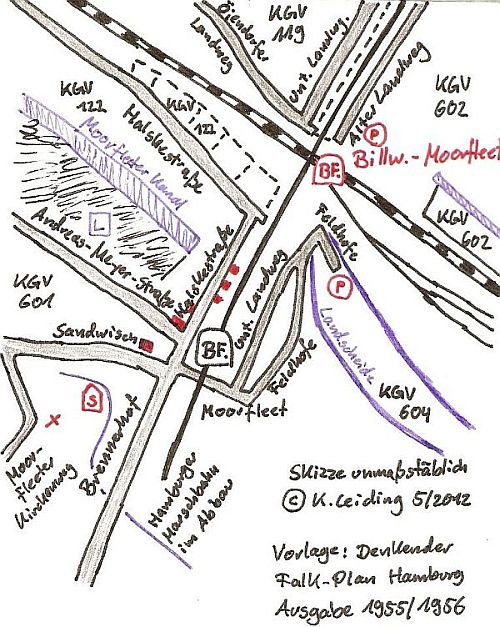 Öjendorfer
Landweg
KGV
119
Unt. Landweg
Alter Landweg
KGV
602
P
KGV
122
KGV
122
Halskestraße
Moorfleeter Kanal
BF.
Billw.-Moorfleet
L
Andreas-Meyer-Straße
Feldhofe
KGV
602
KGV
601
Halskestraße
Unt. Landweg
P
Sandwisch
BF.
Landscheide
Feldhofe
KGV
604
S
Moorfleet
Moor-
fleeter
Kirchenweg
Brennerhof
Hamburger
Marschbahn
im Abbau
Skizze unmaßstäblich
© K. Leiding 5/2012
Vorlage: Denkender
Falk-Plan Hamburg
Ausgabe 1955/1956